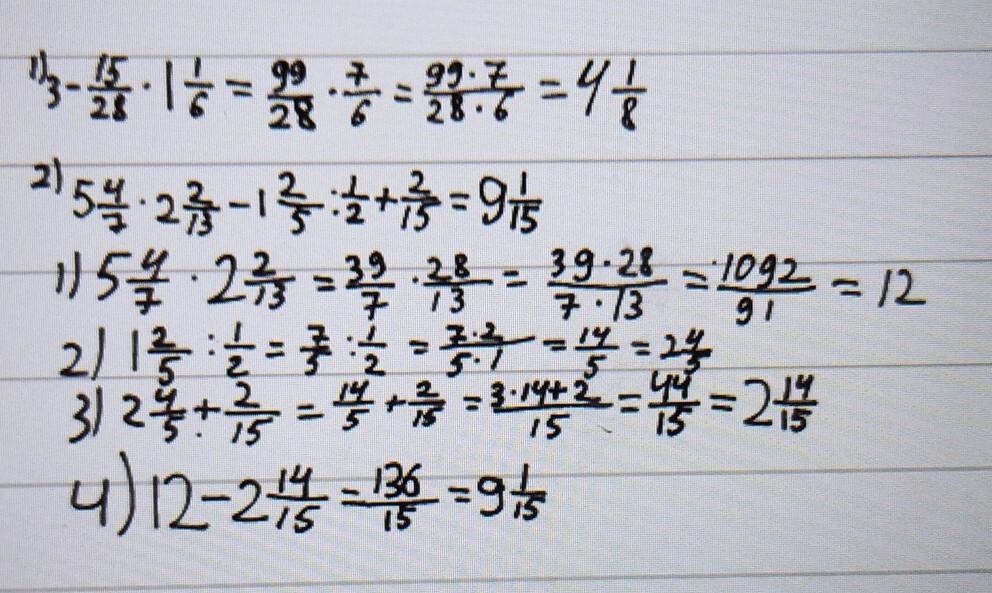 1) 3 - 15/28 · 1 1/6 = 99/28 · 7/6 = 99·7/28·6 = 4 1/8
2) 5 4/7 · 2 2/13 - 1 2/5 : 1/2 + 2/15 = 9 1/15
1) 5 4/7 · 2 2/13 = 39/7 · 28/13 = 39·28/7·13 = 1092/91 = 12
2) 1 2/5 : 1/2 = 7/5 : 1/2 = 7·2/5·1 = 14/5 = 2 4/5
3) 2 4/5 + 2/15 = 14/5 + 2/15 = 3·14+2/15 = 44/15 = 2 14/15
4) 12 - 2 14/15 = 136/15 = 9 1/15